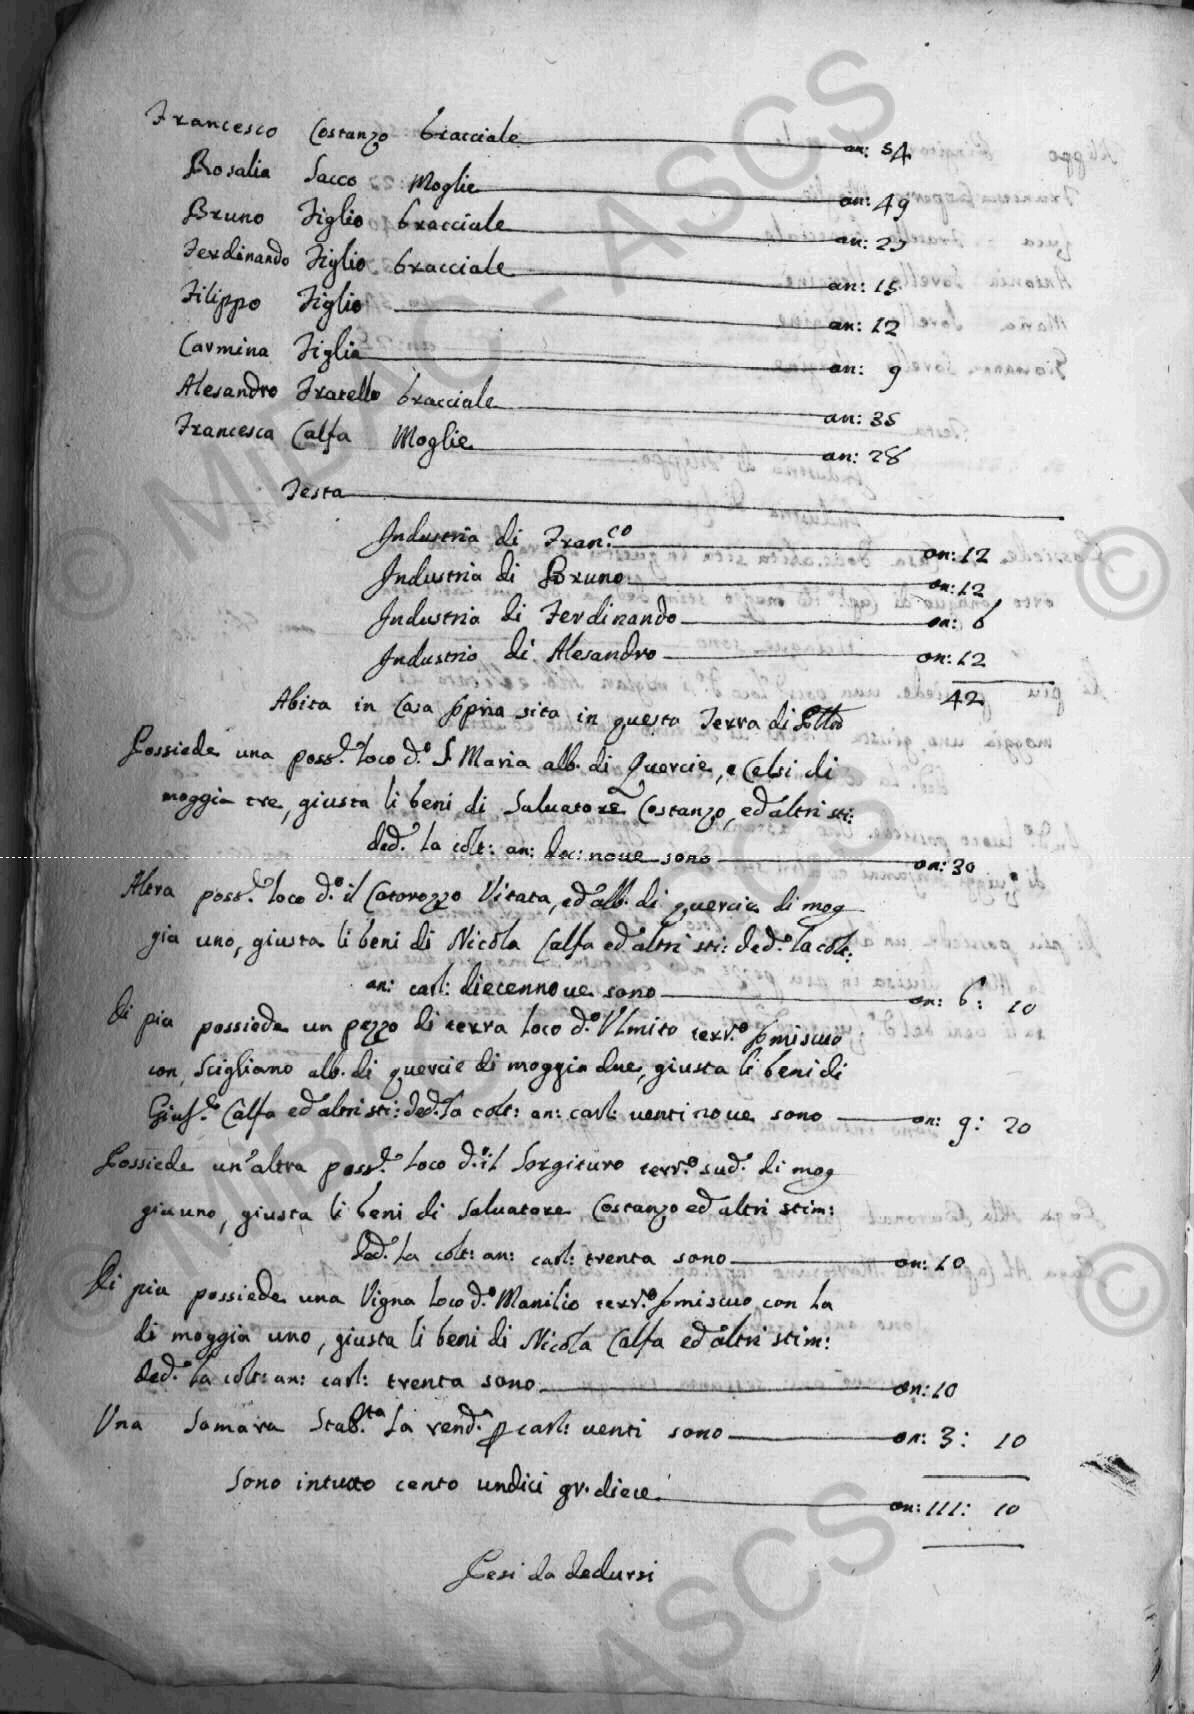 Francesco Costanzo bracciale an: 54
Rosalia Sacco Moglie an: 49
Bruno Figlio bracciale an: 25
Ferdinando Figlio bracciale an: 15
Filippo Figlio an: 12
Carmina Figlia an: 9
Alesandro Fratello bracciale an: 35
Francesca Calfa Moglie an: 28
Testa
Industria di Fran.co on: 12
Industria di Bruno on: 12
Industria di Ferdinando on: 6
Industria di Alesandro on: 12
42
Abita in Casa ppria sita in questa Terra di
Possiede una poss.e loco d.o S. Maria alb. di Quercie, e Celsi di
moggia tre, giusta li beni di Salvatore Costanzo, ed altri sti:
ded.a la colt: an: doc: nove sono on: 30
Altra poss.e loco d.o il Catorozzo Vitata, ed alb. di quercie di mog
gia uno, giusta li beni di Nicola Calfa ed altri sti: ded.a la colt:
an: carl: diecennove sono on: 6: 10
Di più possiede un pezzo di terra loco d.o Ulmito terr.o pmiscuo
con Scigliano alb. di quercie di moggia due, giusta li beni di
Gius.e Calfa ed altri sti: ded.a la colt: an: carl: venti nove sono on: 9: 20
Possiede un'altra poss.e loco d.o il Sorgituro terr.o sud.o di mog
gia uno, giusta li beni di Salvatore Costanzo ed altri stim:
ded.a la colt: an: carl: trenta sono on: 10
Di più possiede una Vigna loco d.o Manilio terr.o pmiscuo con la
di moggia uno, giusta li beni di Nicola Calfa ed altri stim:
ded.a la colt: an: carl: trenta sono on: 10
Una Somara Stab.ta la rend.a p carl: venti sono on: 3: 10
Sono intutto cento undici gr. diece on: 111: 10
Pesi da dedursi
© MIBAC - ASCS
© MIBAC - ASCS
©
©
ASCS